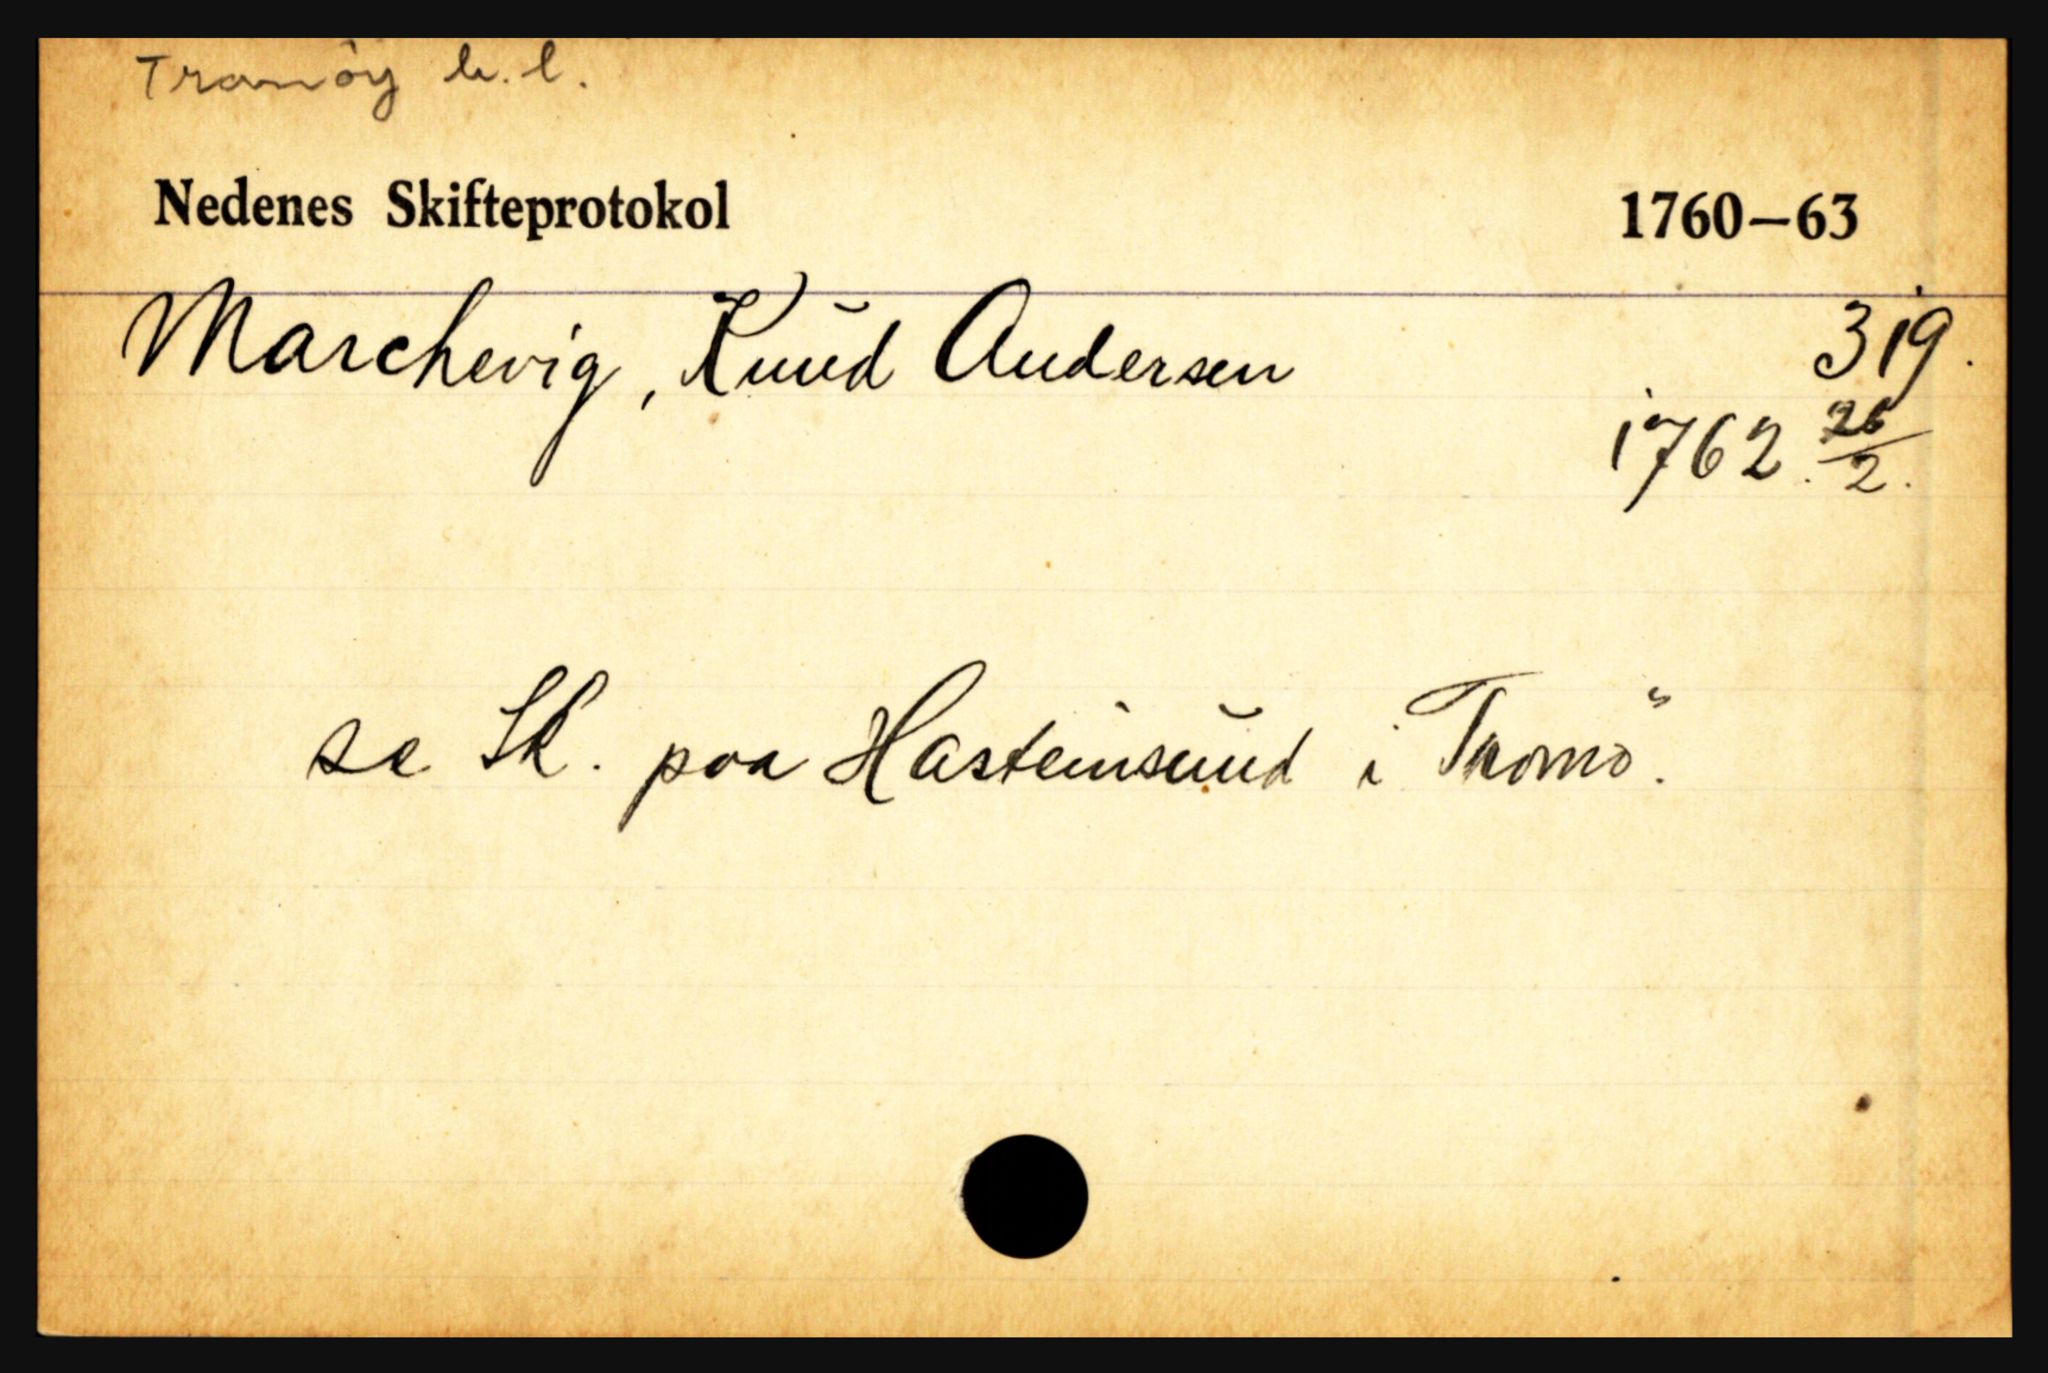 Tranöy h.l.
Nedenes Skifteprotokol 1760—63
Marchevig, Knud Andersen 319.
1762. 26/2.
se Sk. paa Hasteinsund i Tromö.